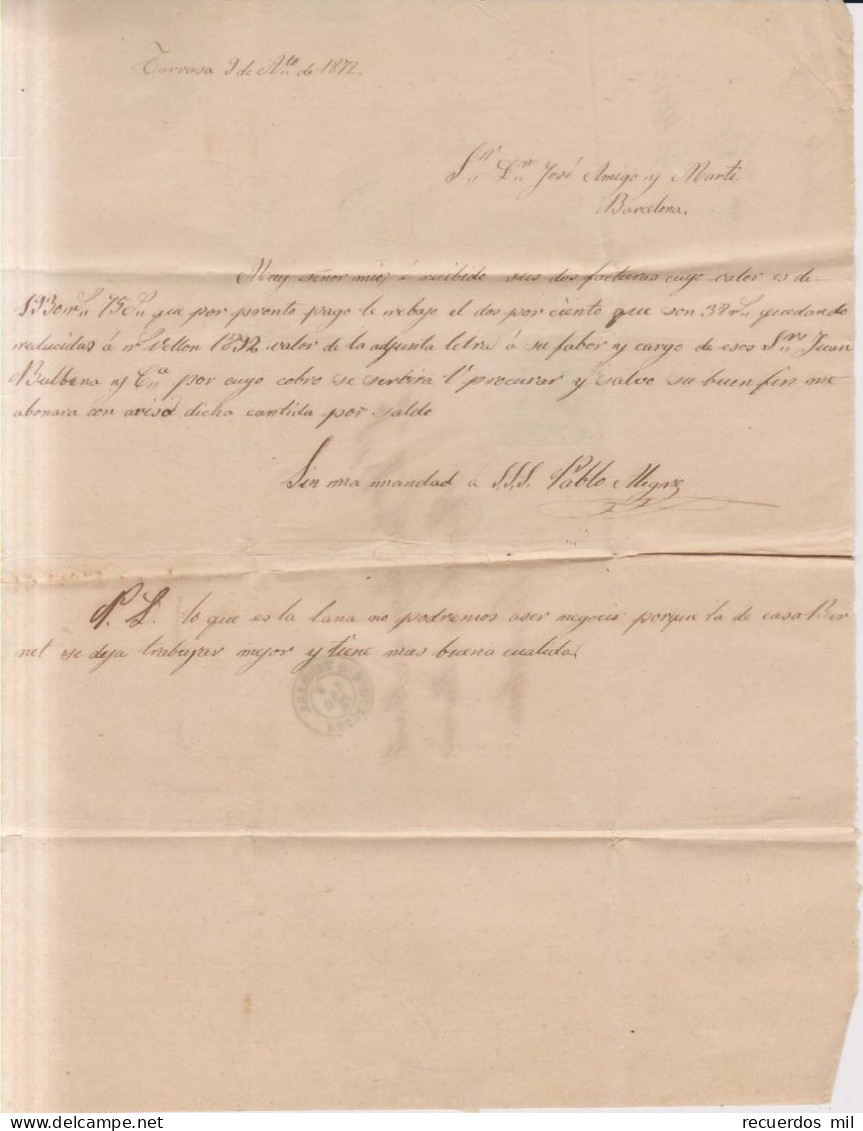 Tarrasa 9 de A.to de 1872.
S.n D.n José Amigo y Marti
Barcelona.
Muy señor mio; é recibido sus dos facturas cuyo valor es de
1930 r.s 75 c.s que por pronto pago le rebajo el dos por ciento que son 38 r.s quedando
reducidas á r.s Vellon 1892 valor de la adjunta letra á su fabor y cargo de esos S.res Juan
Bulbena y C.a por cuyo cobro se serbira procurar y salvo su buen fin me
abonara con aviso dicha cantida por saldo
Sin mas mandad á S.S.S. Pablo Alegre
P. S. lo que es la lana no podremos aser negocio porque la de casa Ber
net se deja trabajar mejor y tiene mas buena cualida.
recuerdos mil